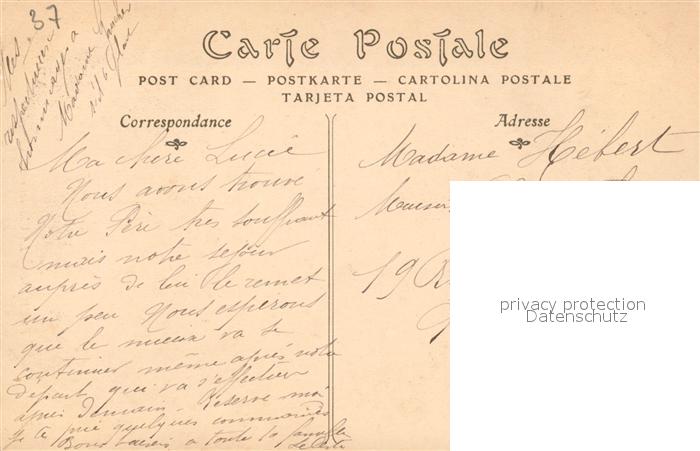 37
Mes
respectueux
hommages à
Madame
Carte Postale
POST CARD — POSTKARTE — CARTOLINA POSTALE
TARJETA POSTAL
Correspondance
Adresse
Ma chère Lucie
Nous avons trouvé
Notre Père très souffrant
mais notre séjour
auprès de lui le remet
un peu Nous espérons
que le mieux va se
continuer même après notre
départ qui va s'effectuer
après demain. Réserve moi
je te prie quelques commandes
Bons baisers a toute la famille
Madame Hébert
19
privacy protection
Datenschutz